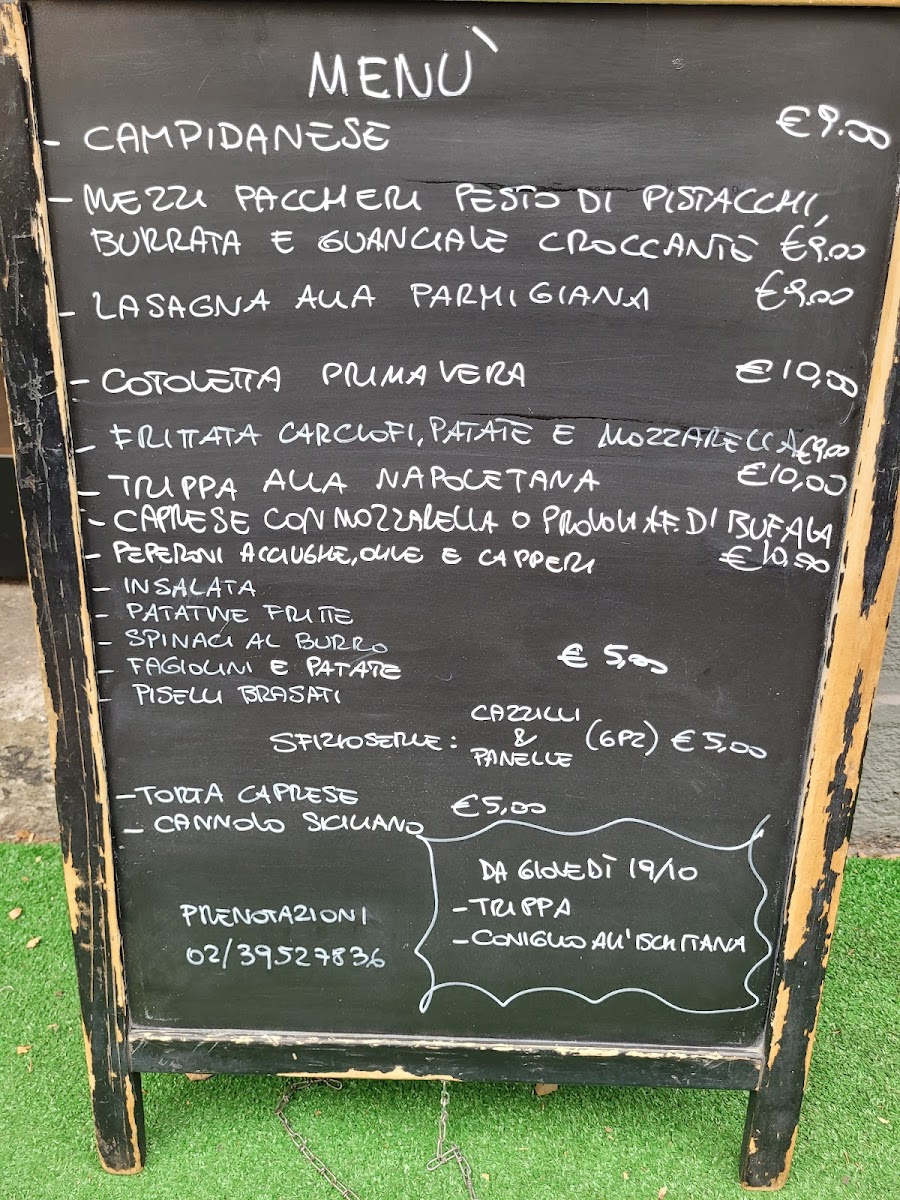 MENÙ
- CAMPIDANESE €9.00
- MEZZI PACCHERI PESTO DI PISTACCHI,
BURRATA E GUANCIALE CROCCANTE €9.00
- LASAGNA ALLA PARMIGIANA €9.00
- COTOLETTA PRIMAVERA €10,00
- FRITTATA CARCIOFI, PATATE E MOZZARELLA €9.00
- TRIPPA ALLA NAPOLETANA €10,00
- CAPRESE CON MOZZARELLA O PROVOLA AF. DI BUFALA
- PEPERONI ACCIUGHE, OLIVE E CAPPERI €10,00
- INSALATA
- PATATINE FRITTE
- SPINACI AL BURRO
- FAGIOLINI E PATATE € 5,00
- PISELLI BRASATI
SFIZIOSERIE: CAZZILLI & PANELLE (6PZ) €5,00
- TORTA CAPRESE €5,00
- CANNOLO SICILIANO
DA GIOVEDÌ 19/10
- TRIPPA
- CONIGLIO ALL'ISCHITANA
PRENOTAZIONI
02/39527836